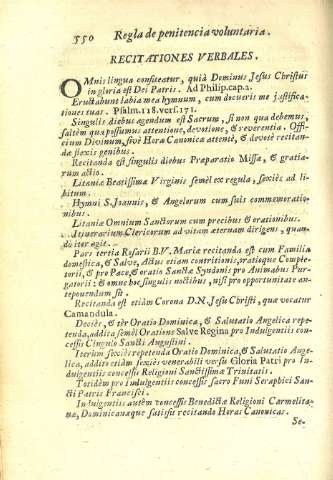 550 Regla de penitencia voluntaria.
RECITATIONES VERBALES.
OMnis lingua confiteatur, quià Dominus Jesus Christus
in gloria est Dei Patris. Ad Philip.cap.2.
Eructabunt labia mea hymnum, cum docueris me justifica-
tiones tuas. Psalm.118.vers.171.
Singulis diebus agendum est Sacrum, si non qua debemus,
saltèm qua possumus attentione, devotione, & reverentia. Offi-
cium Divinum, sivè Hora Canonica attentè, & devotè recitan-
da flexis genibus.
Recitanda est singulis diebus Præparatio Missæ, & gratia-
rum actio.
Litaniæ Beatissimæ Virginis semèl ex regula, sexièz ad li-
bitum.
Hymni S. Joannis, & Angelorum cum suis commemoratio-
nibus.
Litaniæ Omnium Sanctorum cum precibus & orationibus.
Itinerarium Clericorum ad vitam æternam dirigens, quan-
dò iter agit.
Pars tertia Rosarii B.V. Mariæ recitanda est cum Familia
domestica, & Salve, Actus etiam contritionis, ratioque Complè-
torii, & pro Pace, & oratio Sanctæ Syndonis pro Animabus Pur-
gatorii: & omne hoc singulis noctibus, nisi pro opportunitate an-
teponendum sit.
Recitanda est etiàm Corona D.N. Jesu Christi, quæ vocatur
Camandula.
Deciès, & tèr Oratio Dominica, & Salutatio Angelica repe-
tenda, addita semèl Oratione Salve Regina pro Indulgentiis con-
cessis Cingulo Sancti Augustini.
Iterùm sexiès repetenda Oratio Dominica, & Salutatio Ange-
lica, addito etiàm sexiès venerabili versu Gloria Patri pro In-
dulgentiis concessis Religioni Sanctissimæ Trinitatis.
Totidèm pro Indulgentiis concessis sacro Funi Seraphici San-
cti Patris Francisci.
Indulgentiis autèm concessis Benedictæ Religioni Carmelita-
næ, Dominicanæque satisfit recitando Horas Canonicas.
Se-